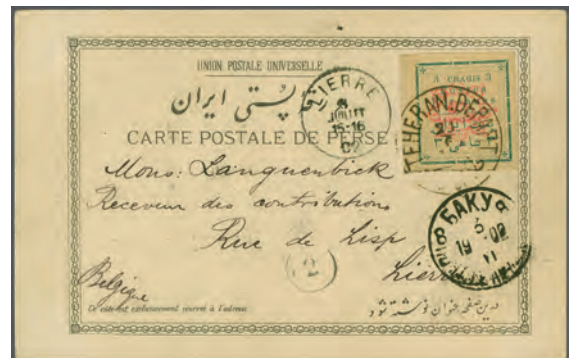 UNION POSTALE UNIVERSELLE
پستی ایران
CARTE POSTALE DE PERSE
LIERRE
8
JUILLET
15-16
02
3 CHAHIS 3
TEHERAN.DEPART
Mons: Languenbick
Receveur des contributions
Rue de Lisp
Lierre
Belgique
БАКУ
19 02
VI
2
Ce côté est exclusivement réservé à l'adresse
درین صفحه عنوان نوشته شود